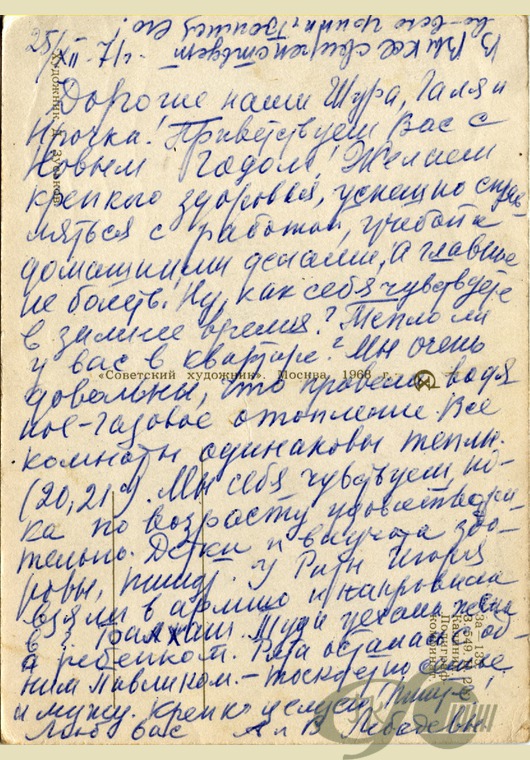 25/XII-71г.
Дорогие наши Шура, Галя и
Ирочка! Приветствуем Вас с
Новым Годом! Желаем
крепкого здоровья, успешно справ
ляться с работой, учебой и
домашними делами, а главное
не болеть. Ну, как себя чувствуете
в зимнее время? Тепло ли
у вас в квартире? Мы очень
довольны, что провели водя
ное-газовое отопление. Все
комнаты одинаково теплы.
(20,21°). Мы себя чувствуем, по-
ка по возрасту удовлетвори
тельно. Детки и внучата здо-
ровы, пишут. У Риты Игоря
взяли в армию и направили
в Балхаш. Туда уехала жена
с ребенком. Рита осталась с од-
ним Павликом.- тоскует по
и мужу. Крепко целуем! Пишите!
Любящие вас А и В Лебедевы
Художник Д.
«Советский художник». Москва. 1968 г.